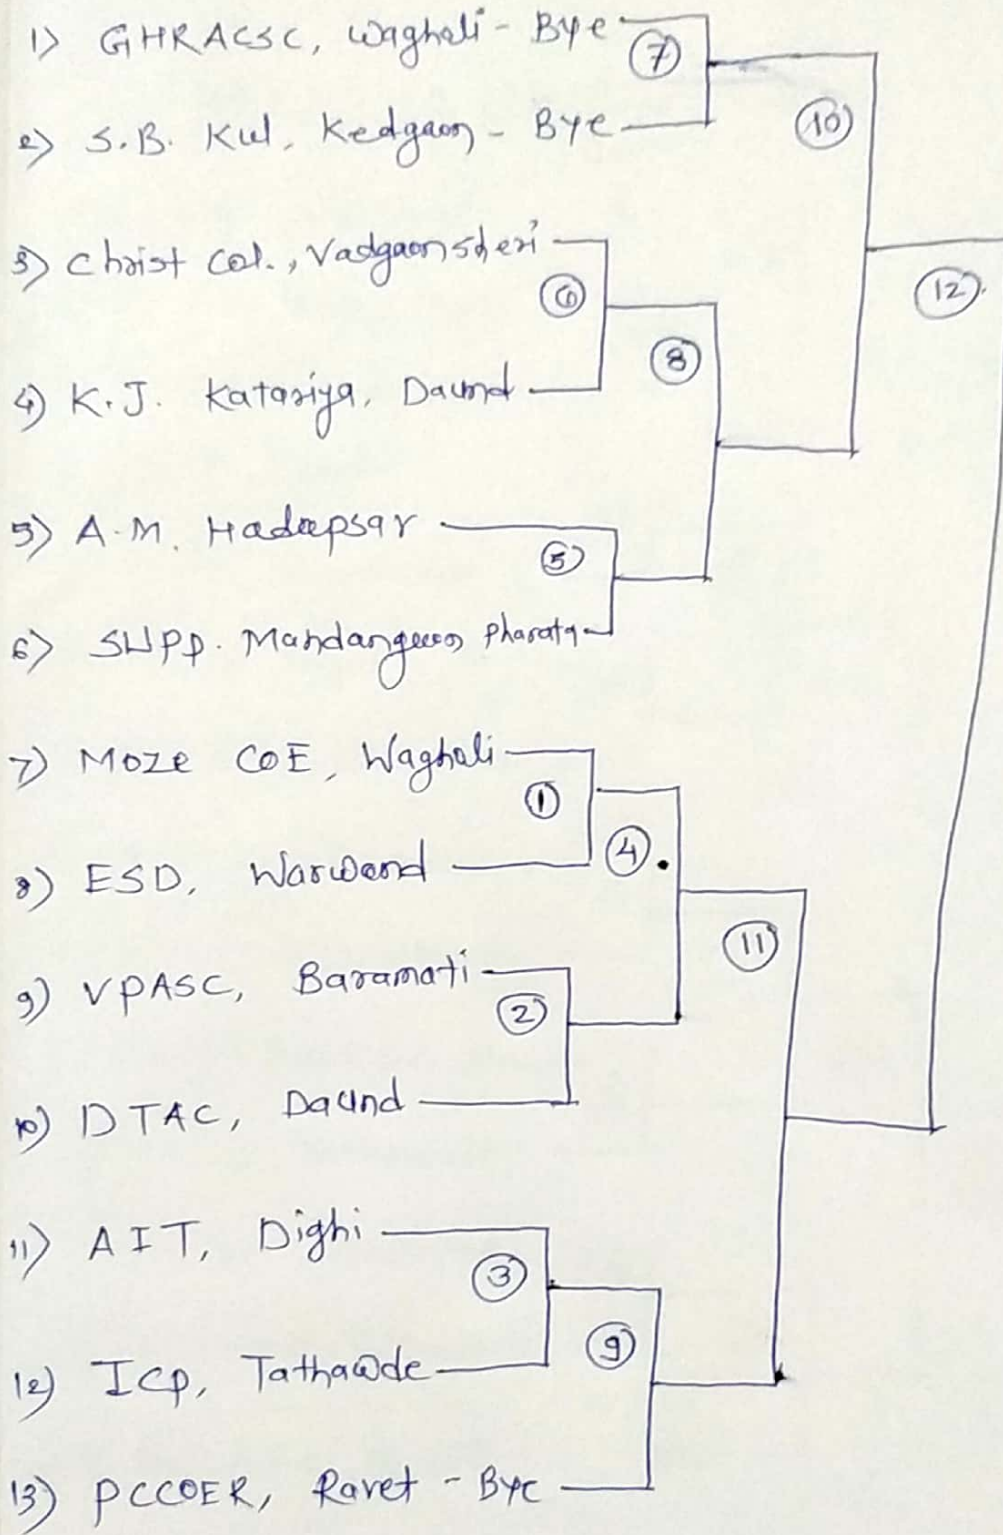 1) GHRACSC, Wagholi - Bye
⑦
2) S.B. Kul, Kedgaon - Bye
⑩
3) Christ Col., Vadgaonsheri
⑥
⑫
⑧
4) K.J. Katariya, Daund
5) A.M. Hadapsar
⑤
6) SUPP. Mandangaon Pharata
7) Moze COE, Wagholi
①
④
8) ESD, Warwand
⑪
9) VPASC, Baramati
②
10) DTAC, Daund
11) AIT, Dighi
③
⑨
12) ICP, Tathawde
13) PCCOER, Ravet - Bye